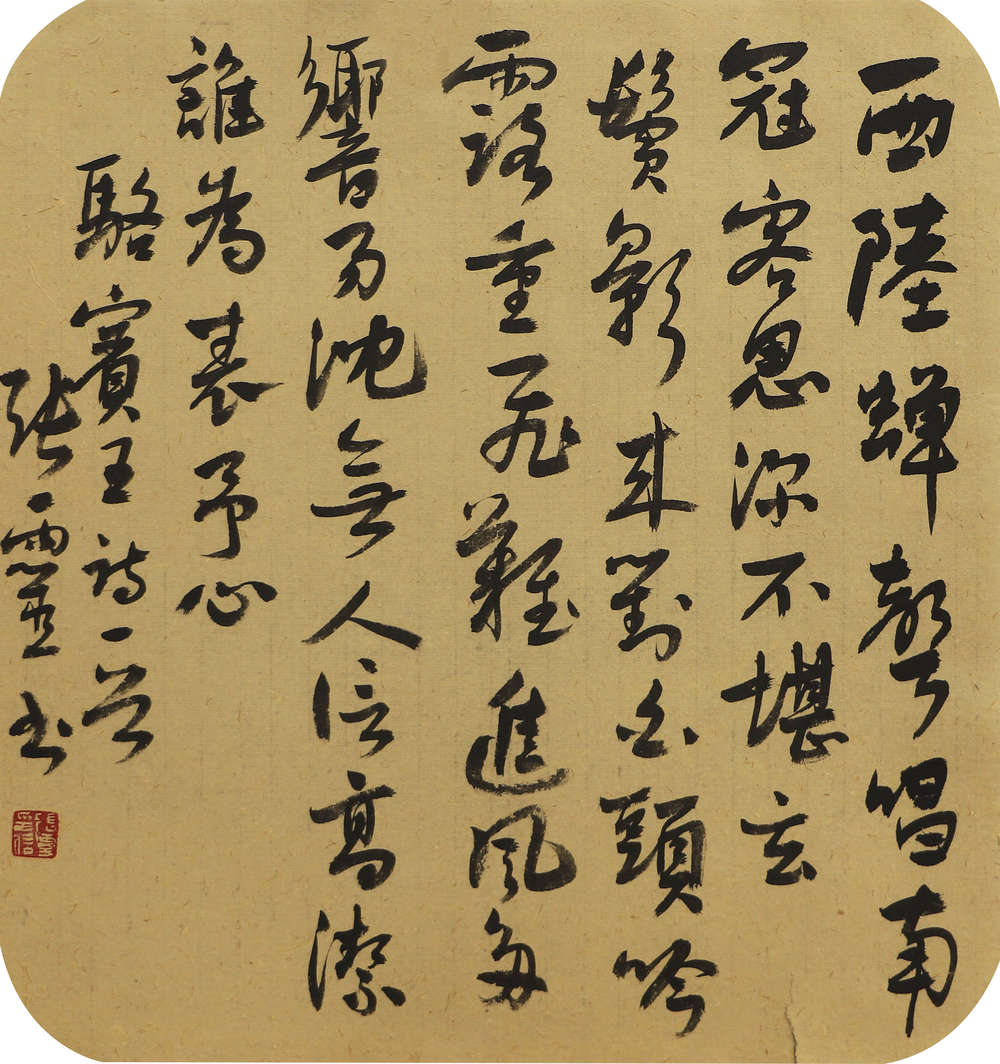 西陸蟬聲唱南
冠客思深不堪玄
鬢影來對白頭吟
露重飛難進風多
響易沈無人信高潔
誰為表予心
駱賓王詩一首
張靈書
張靈印信